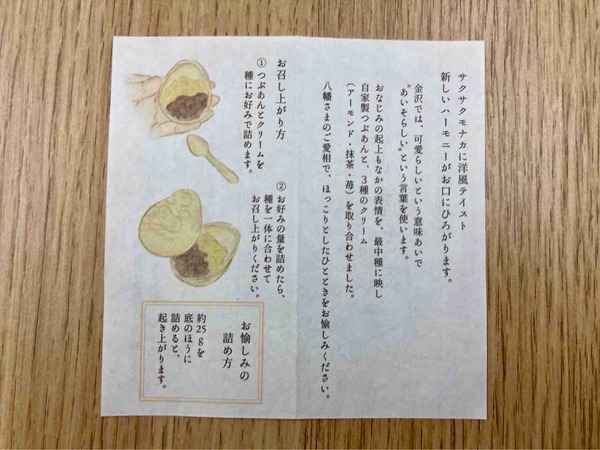 サクサクモナカに洋風テイスト
新しいハーモニーがお口にひろがります。
金沢では、可愛らしいという意味あいで
"あいそらしい"という言葉を使います。
おなじみの起上もなかの表情を、最中種に映し
自家製つぶあんと、3種のクリーム
(アーモンド・抹茶・苺)を取り合わせました。
八幡さまのご愛相で、ほっこりとしたひとときをお愉しみください。
お召し上がり方
①つぶあんとクリームを
種にお好みで詰めます。
②お好みの量を詰めたら、
種を一体に合わせて
お召し上がりください。
お愉しみの
詰め方
約25gを
底のほうに
詰めると、
起き上がります。